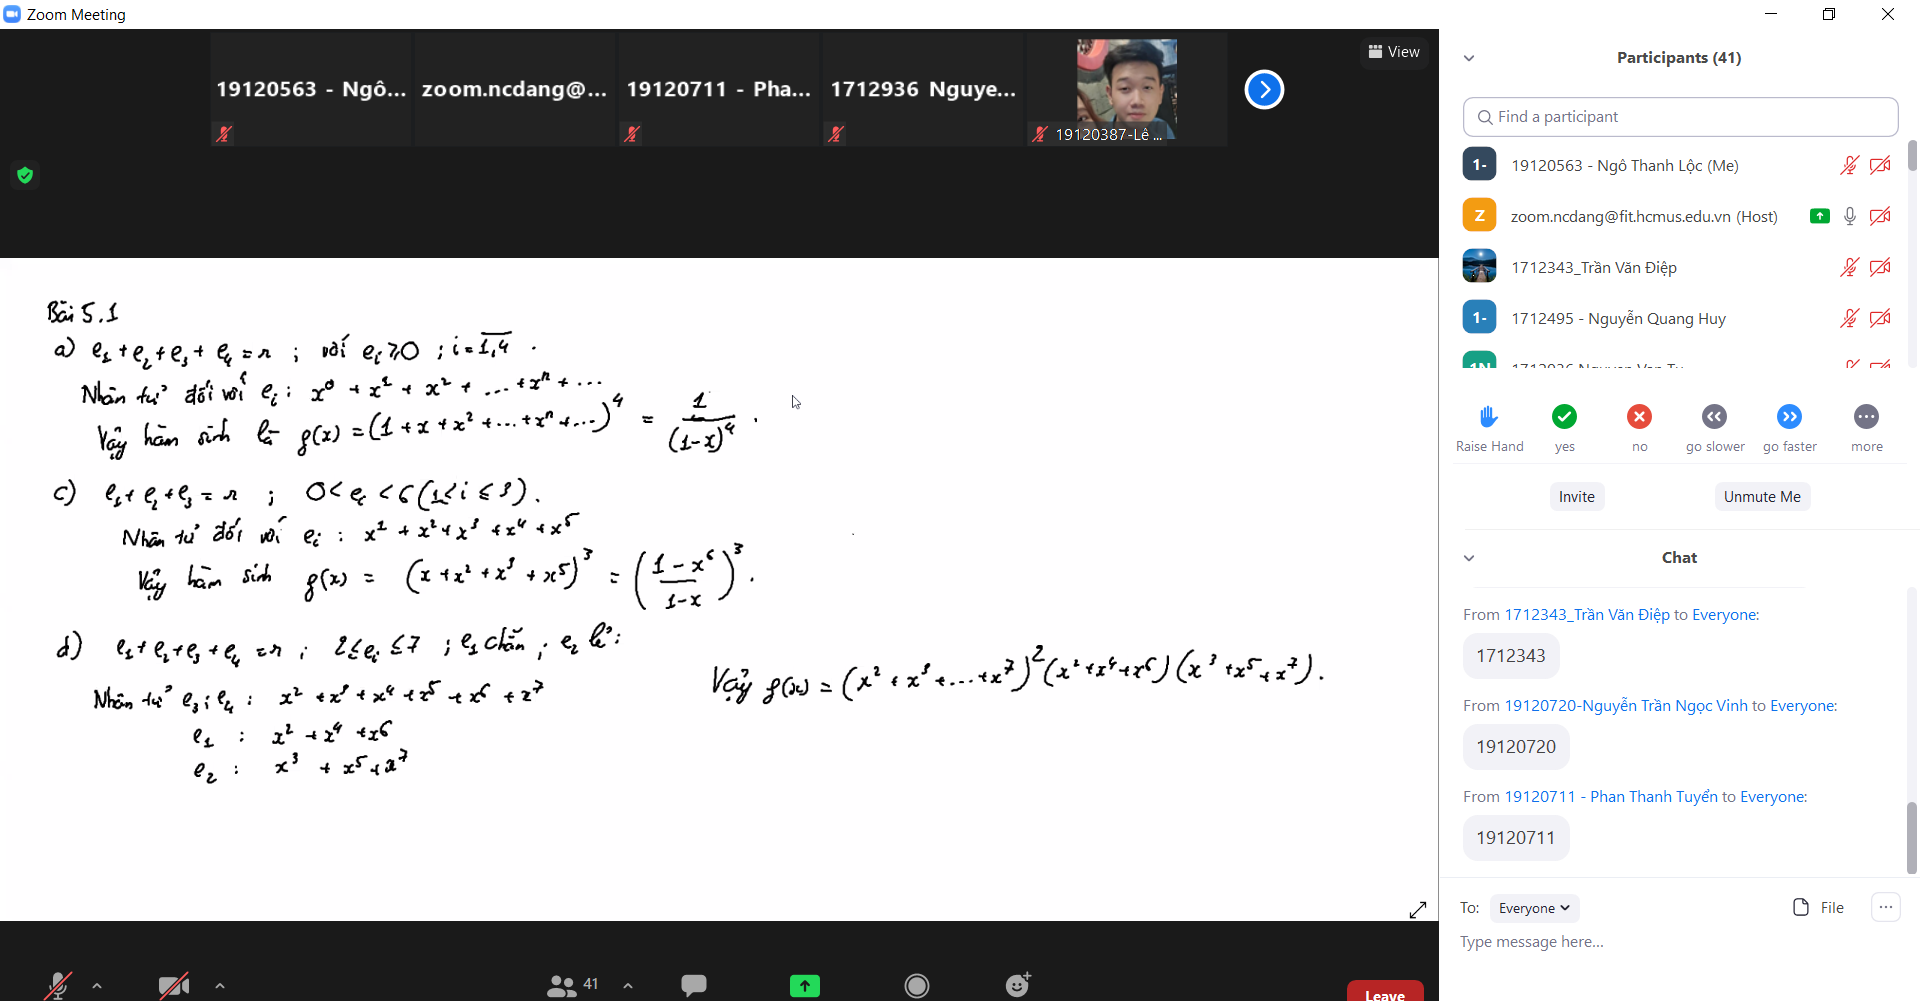 Zoom Meeting
19120563 - Ngô...
zoom.ncdang@...
19120711 - Pha...
1712936 Nguye...
19120387-Lê ...
View
Bài 5.1
a) e₁ + e₂ + e₃ + e₄ = r ; với eᵢ ≥ 0 ; i = 1,4 .
Nhân tử đối với eᵢ : x⁰ + x¹ + x² + ... + xⁿ + ...
Vậy hàm sinh là g(x) = (1 + x + x² + ... + xⁿ + ...)⁴ = 1/(1-x)⁴ .
c) e₁ + e₂ + e₃ = r ; 0 < eᵢ < 6 (1 ≤ i ≤ 3).
Nhân tử đối với eᵢ : x¹ + x² + x³ + x⁴ + x⁵
Vậy hàm sinh g(x) = (x + x² + x³ + x⁵)³ = ((1 - x⁶)/(1-x))³ .
d) e₁ + e₂ + e₃ + e₄ = r ; 2 ≤ eᵢ ≤ 7 ; e₁ chẵn ; e₂ lẻ :
Nhân tử e₃ ; e₄ : x² + x³ + x⁴ + x⁵ + x⁶ + x⁷
e₁ : x² + x⁴ + x⁶
e₂ : x³ + x⁵ + x⁷
Vậy g(x) = (x² + x³ + ... + x⁷)² (x² + x⁴ + x⁶) (x³ + x⁵ + x⁷).
41
Leave
Participants (41)
Find a participant
1- 19120563 - Ngô Thanh Lộc (Me)
Z zoom.ncdang@fit.hcmus.edu.vn (Host)
1712343_Trần Văn Điệp
1- 1712495 - Nguyễn Quang Huy
Raise Hand yes no go slower go faster more
Invite Unmute Me
Chat
From 1712343_Trần Văn Điệp to Everyone:
1712343
From 19120720-Nguyễn Trần Ngọc Vinh to Everyone:
19120720
From 19120711 - Phan Thanh Tuyển to Everyone:
19120711
To: Everyone File
Type message here...